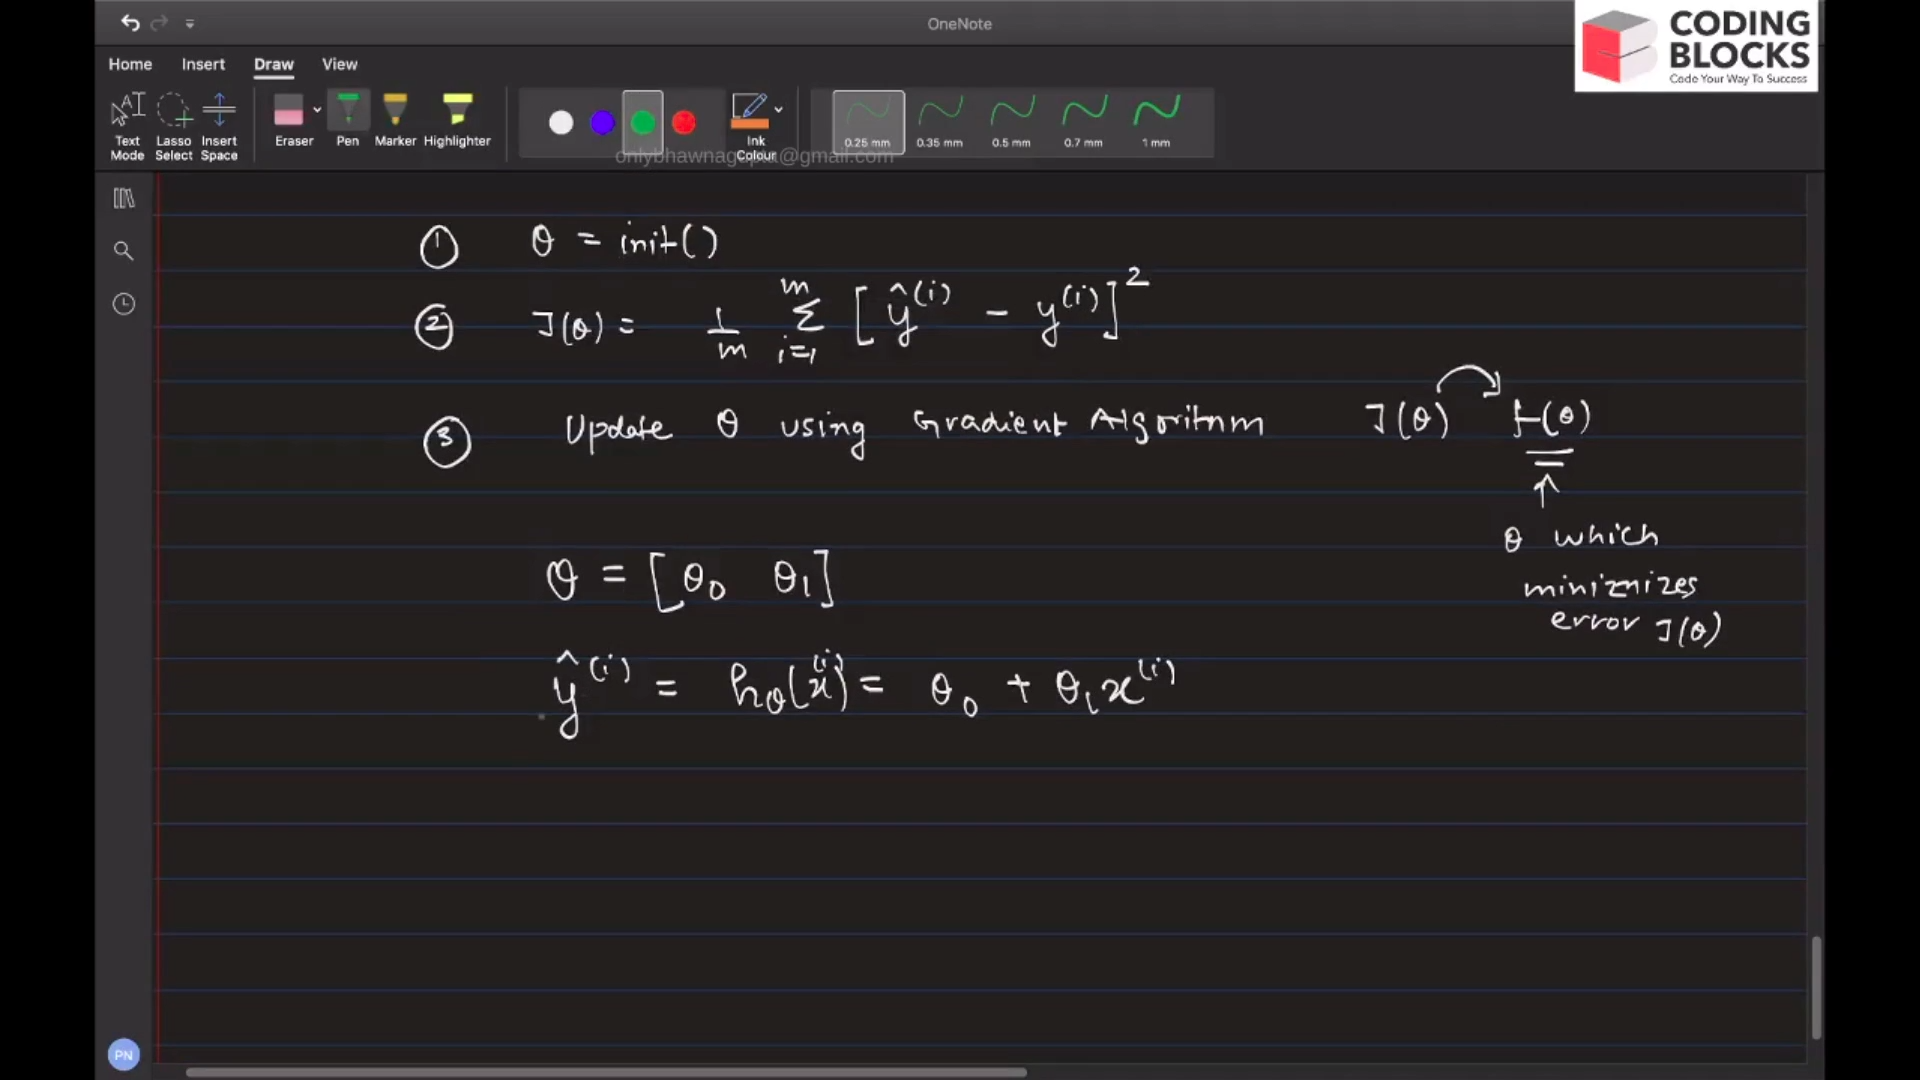 OneNote
CODING
BLOCKS
Code Your Way To Success
Home Insert Draw View
Text Mode
Lasso Select
Insert Space
Eraser
Pen
Marker
Highlighter
Ink Colour
0.25 mm
0.35 mm
0.5 mm
0.7 mm
1 mm
onlybhawnagupta@gmail.com
① θ = init()
② J(θ) = 1/m Σ_{i=1}^{m} [ŷ^(i) − y^(i)]²
③ Update θ using Gradient Algorithm J(θ) f(θ)
↑
θ which
minimizes
error J(θ)
θ = [θ₀ θ₁]
ŷ^(i) = h_θ(x^(i)) = θ₀ + θ₁x^(i)
PN